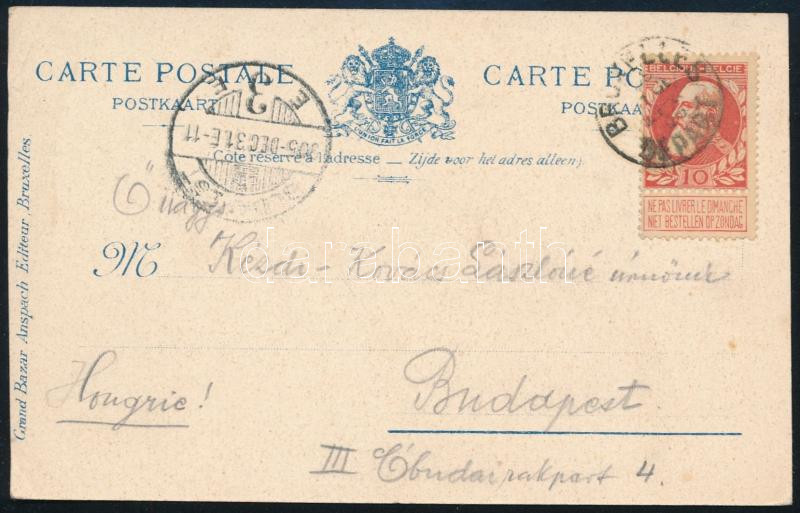 CARTE POSTALE
POSTKAART
CARTE PO
POSTKAA
L'UNION FAIT LA FORCE
BELGIQUE-BELGIË
10
NE PAS LIVRER LE DIMANCHE
NIET BESTELLEN OP ZONDAG
BRUXELLES
DEPART
3
905 DEC 31 E-11
Côté réservé à l'adresse — Zijde voor het adres alleen
darabanth
M Kézdi-Kovács Lászlóné úrnőnek
Budapest.
Hongrie!
III Óbudai rakpart 4.
Grand Bazar Anspach Editeur, Bruxelles.